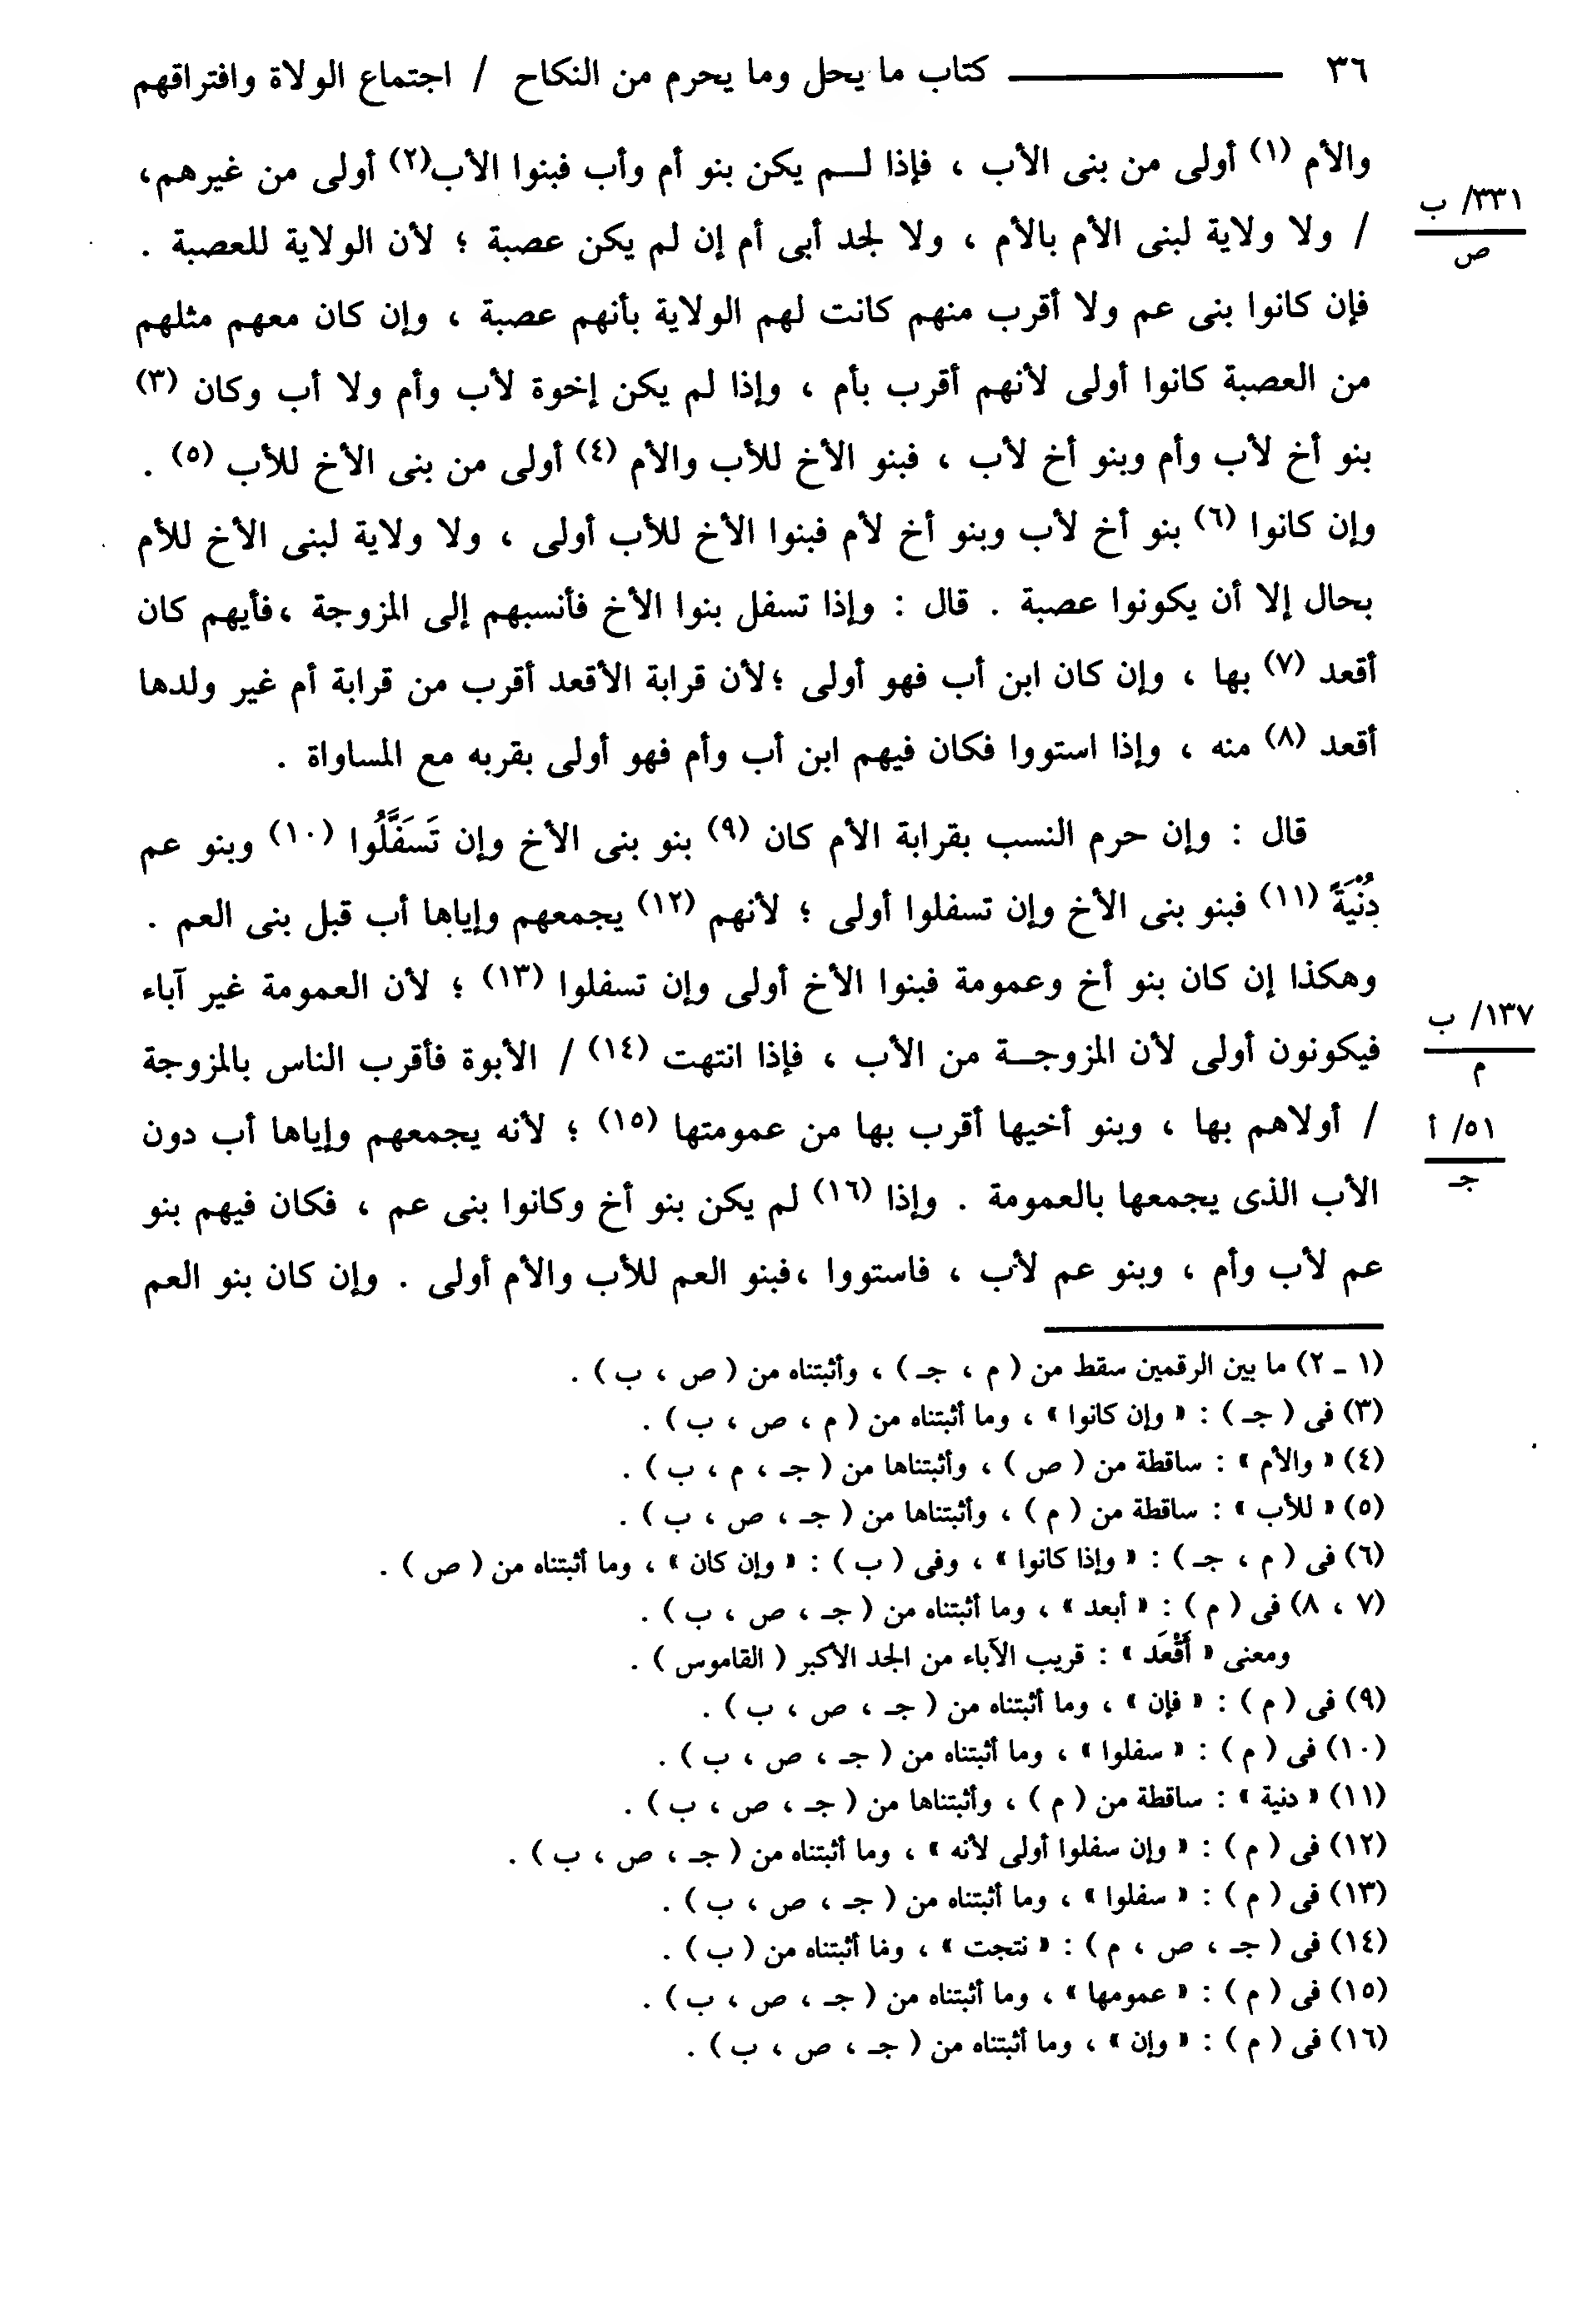 ٣٦ ــــــــــــ كتاب ما يحل وما يحرم من النكاح / اجتماع الولاة وافتراقهم
والأم (١) أولى من بنى الأب ، فإذا لـــم يكن بنو أم وأب فبنوا الأب(٢) أولى من غيرهم،
٣٣١/ ب
ص
/ ولا ولاية لبنى الأم بالأم ، ولا لجد أبى أم إن لم يكن عصبة ؛ لأن الولاية للعصبة .
فإن كانوا بنى عم ولا أقرب منهم كانت لهم الولاية بأنهم عصبة ، وإن كان معهم مثلهم
من العصبة كانوا أولى لأنهم أقرب بأم ، وإذا لم يكن إخوة لأب وأم ولا أب وكان (٣)
بنو أخ لأب وأم وبنو أخ لأب ، فبنو الأخ للأب والأم (٤) أولى من بنى الأخ للأب (٥) .
وإن كانوا (٦) بنو أخ لأب وبنو أخ لأم فبنوا الأخ للأب أولى ، ولا ولاية لبنى الأخ للأم
بحال إلا أن يكونوا عصبة . قال : وإذا تسفل بنوا الأخ فأنسبهم إلى المزوجة ،فأيهم كان
أقعد (٧) بها ، وإن كان ابن أب فهو أولى ؛لأن قرابة الأقعد أقرب من قرابة أم غير ولدها
أقعد (٨) منه ، وإذا استووا فكان فيهم ابن أب وأم فهو أولى بقربه مع المساواة .
قال : وإن حرم النسب بقرابة الأم كان (٩) بنو بنى الأخ وإن تَسَفَّلُوا (١٠) وبنو عم
دُِنْيَةً (١١) فبنو بنى الأخ وإن تسفلوا أولى ؛ لأنهم (١٢) يجمعهم وإياها أب قبل بنى العم .
وهكذا إن كان بنو أخ وعمومة فبنوا الأخ أولى وإن تسفلوا (١٣) ؛ لأن العمومة غير آباء
١٣٧/ ب
م
فيكونون أولى لأن المزوجـــة من الأب ، فإذا انتهت (١٤) / الأبوة فأقرب الناس بالمزوجة
٥١/ أ
جـ
/ أولاهم بها ، وبنو أخيها أقرب بها من عمومتها (١٥) ؛ لأنه يجمعهم وإياها أب دون
الأب الذى يجمعها بالعمومة . وإذا (١٦) لم يكن بنو أخ وكانوا بنى عم ، فكان فيهم بنو
عم لأب وأم ، وبنو عم لأب ، فاستووا ،فبنو العم للأب والأم أولى . وإن كان بنو العم
(١ ـ ٢) ما بين الرقمين سقط من ( م ، جـ ) ، وأثبتناه من ( ص ، ب ) .
(٣) فى ( جـ ) : « وإن كانوا » ، وما أثبتناه من ( م ، ص ، ب ) .
(٤) « والأم » : ساقطة من ( ص ) ، وأثبتناها من ( جـ ، م ، ب ) .
(٥) « للأب » : ساقطة من ( م ) ، وأثبتناها من ( جـ ، ص ، ب ) .
(٦) فى ( م ، جـ ) : « وإذا كانوا » ، وفى ( ب ) : « وإن كان » ، وما أثبتناه من ( ص ) .
(٧ ، ٨) فى ( م ) : « أبعد » ، وما أثبتناه من ( جـ ، ص ، ب ) .
ومعنى « أَقْعَد » : قريب الآباء من الجد الأكبر ( القاموس ) .
(٩) فى ( م ) : « فإن » ، وما أثبتناه من ( جـ ، ص ، ب ) .
(١٠) فى ( م ) : « سفلوا » ، وما أثبتناه من ( جـ ، ص ، ب ) .
(١١) « دنية » : ساقطة من ( م ) ، وأثبتناها من ( جـ ، ص ، ب ) .
(١٢) فى ( م ) : « وإن سفلوا أولى لأنه » ، وما أثبتناه من ( جـ ، ص ، ب ) .
(١٣) فى ( م ) : « سفلوا » ، وما أثبتناه من ( جـ ، ص ، ب ) .
(١٤) فى ( جـ ، ص ، م ) : « نتجت » ، وما أثبتناه من ( ب ) .
(١٥) فى ( م ) : « عمومها » ، وما أثبتناه من ( جـ ، ص ، ب ) .
(١٦) فى ( م ) : « وإن » ، وما أثبتناه من ( جـ ، ص ، ب ) .